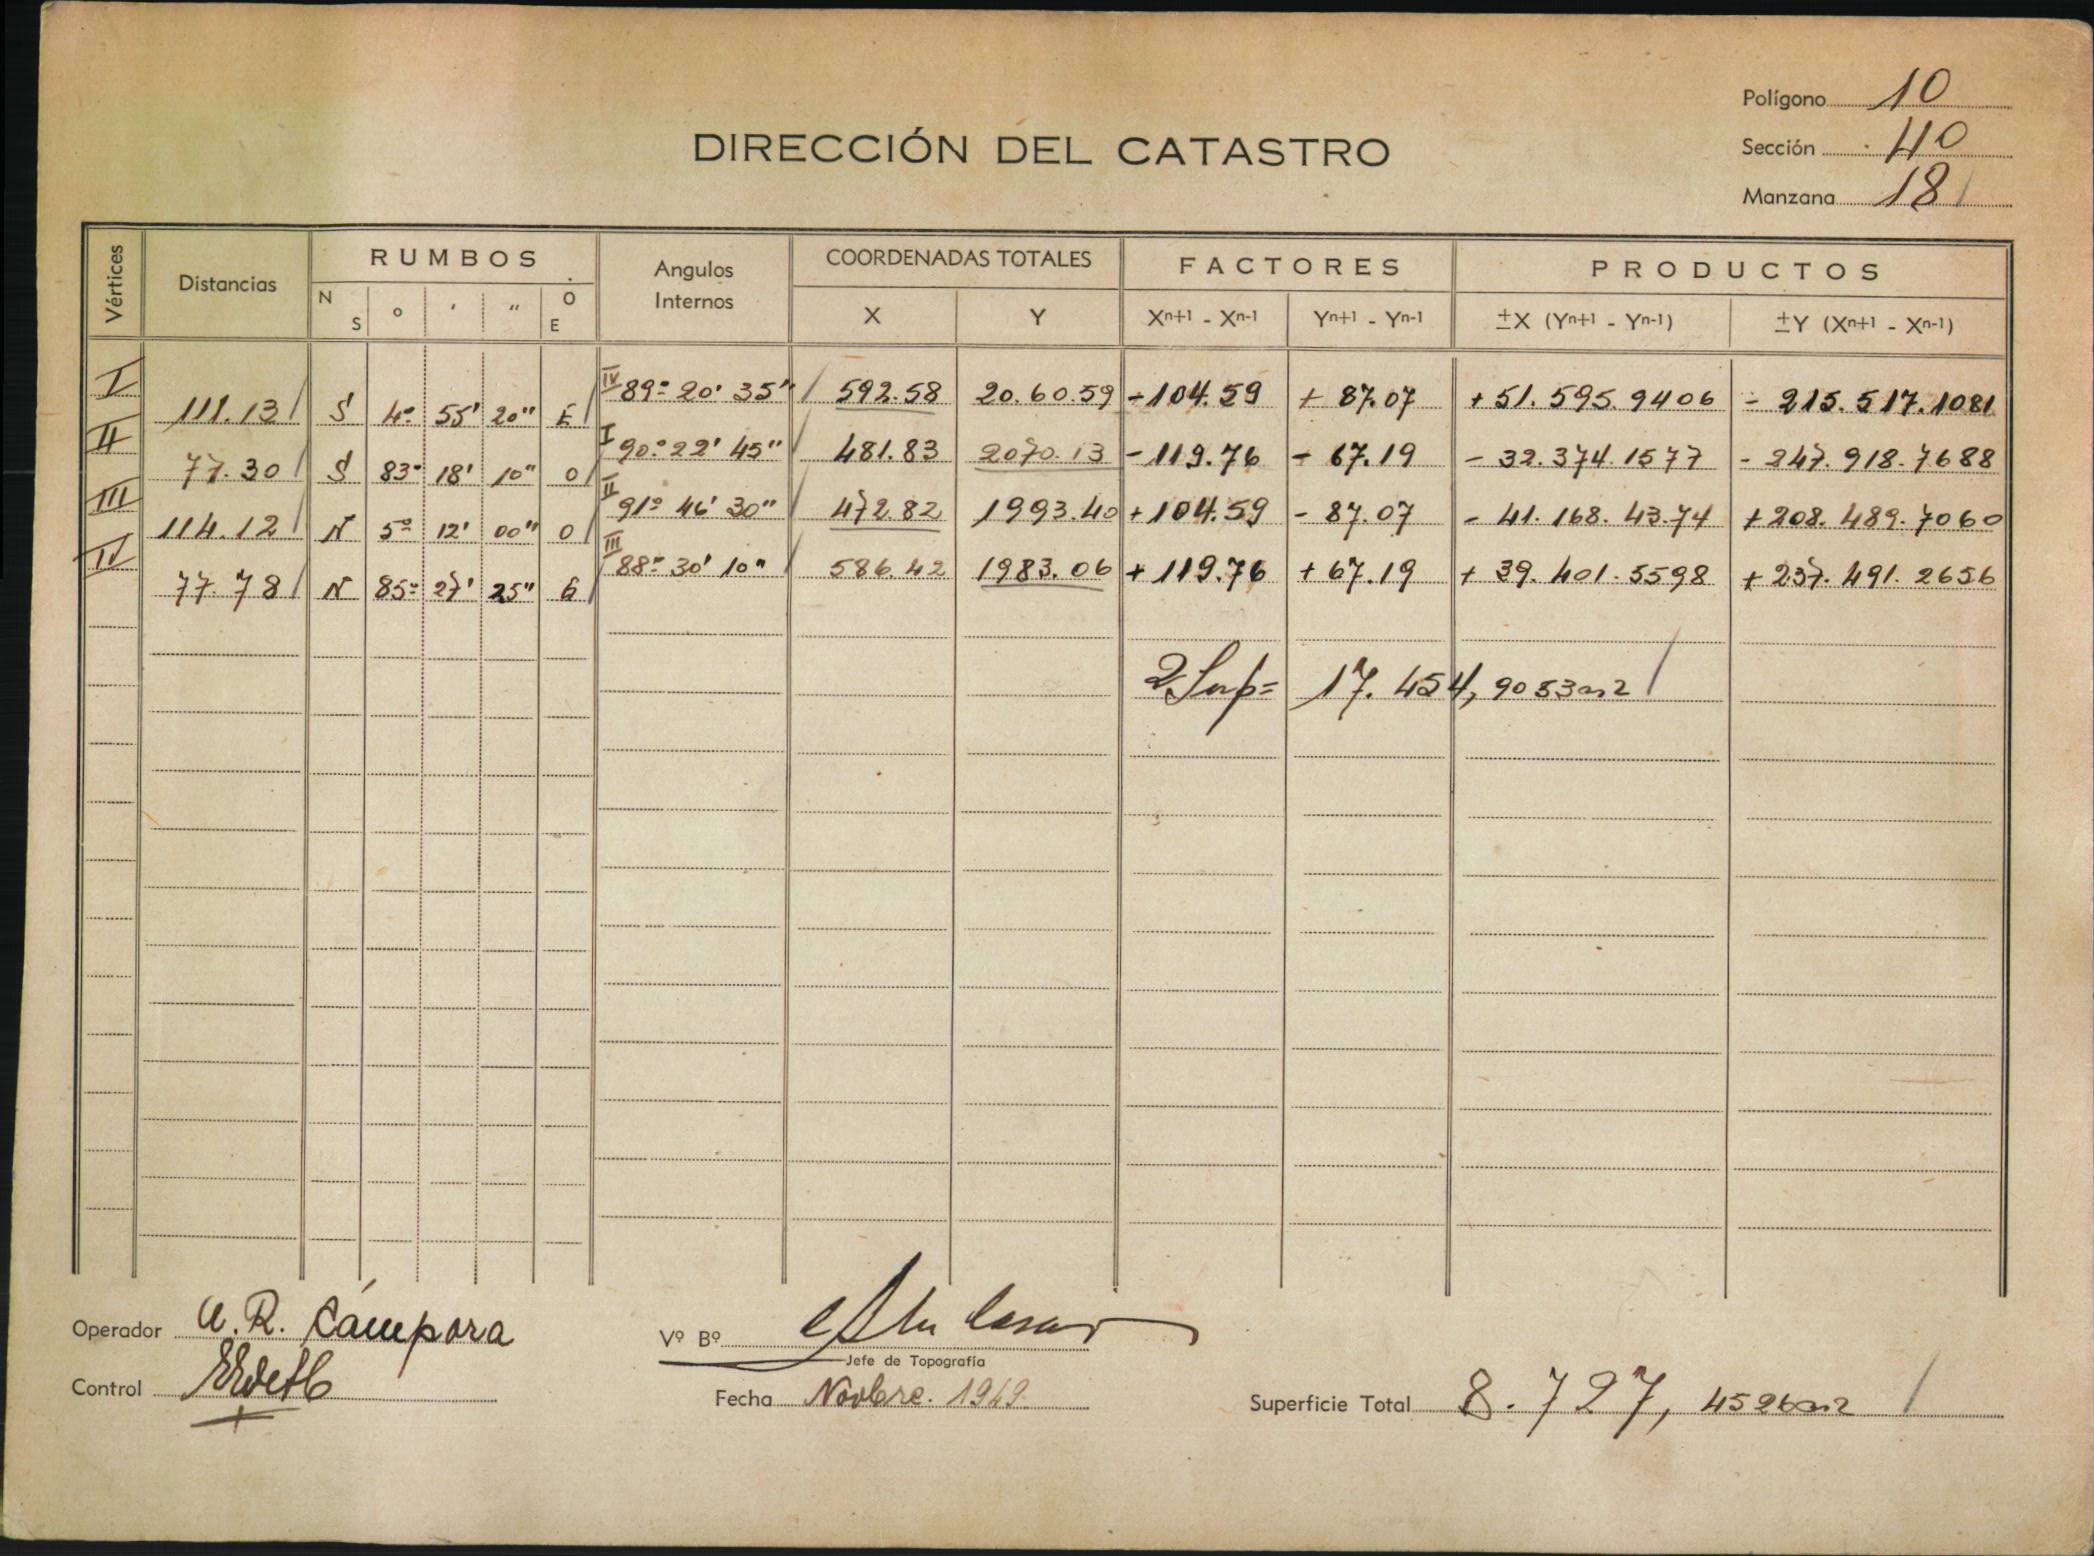 Polígono 10
Sección 40
Manzana 18
DIRECCIÓN DEL CATASTRO
Vértices Distancias RUMBOS Angulos Internos COORDENADAS TOTALES FACTORES PRODUCTOS
N S ° ' " O E X Y Xn+1 - Xn-1 Yn+1 - Yn-1 ±X (Yn+1 - Yn-1) ±Y (Xn+1 - Xn-1)
I 111.13 S 4° 55' 20" E IV 89° 20' 35" 592.58 20.60.59 -104.59 + 87.07 + 51.595.9406 - 215.517.1081
II 77.30 S 83° 18' 10" O I 90° 22' 45" 481.83 2070.13 -119.76 - 67.19 - 32.374.1577 - 247.918.7688
III 114.12 N 5° 12' 00" O II 91° 46' 30" 472.82 1993.40 +104.59 - 87.07 - 41.168.43.74 +208.489.7060
IV 77.78 N 85° 27' 25" E III 88° 30' 10" 586.42 1983.06 +119.76 +67.19 + 39.401.5598 +237.491.2656
2 Sup= 17.454,9053m2
Operador R. Cámpora
Vº Bº
Jefe de Topografía
Control
Fecha Novbre. 1949.
Superficie Total 8.727, 4526m2